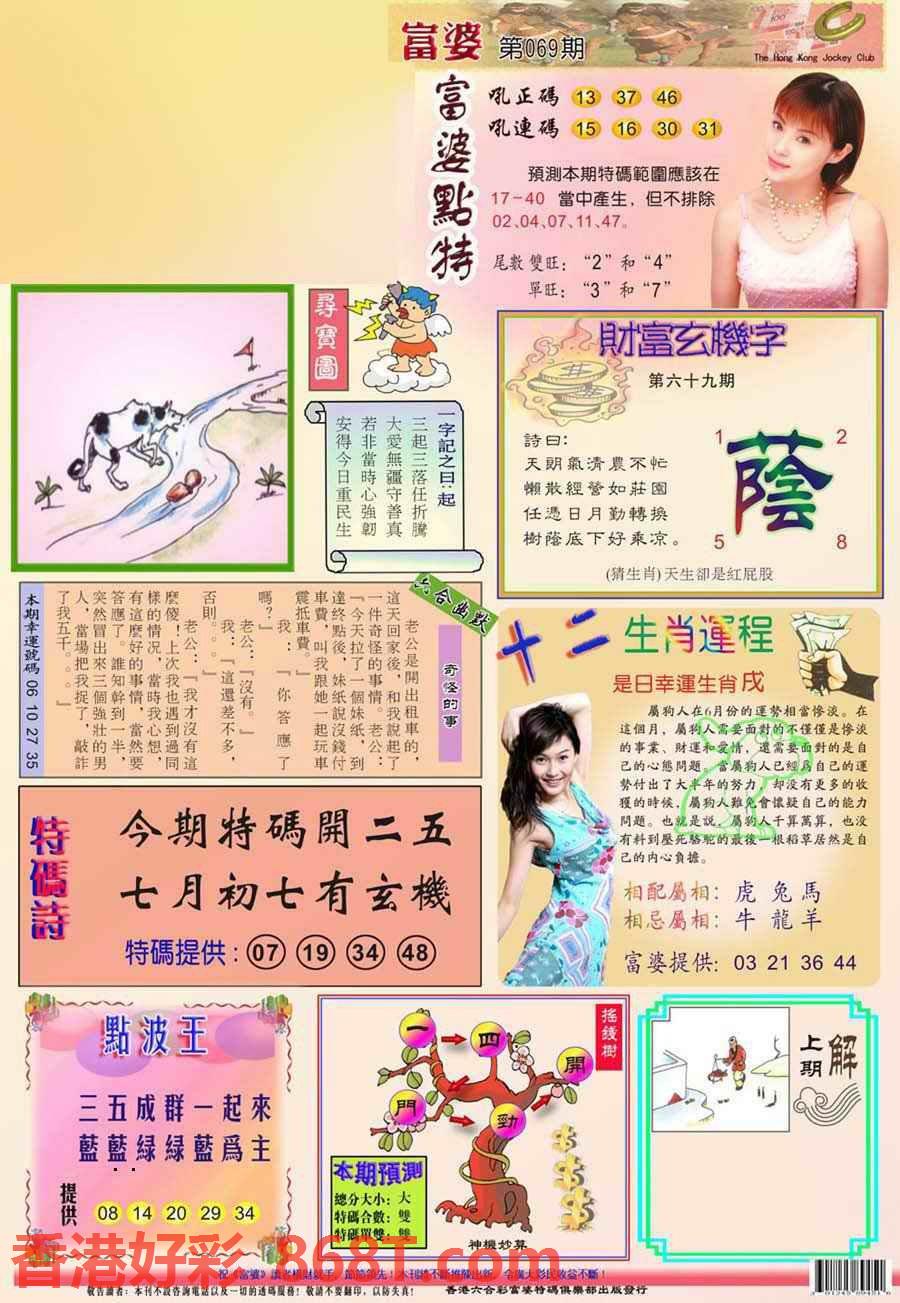 富婆 第069期
The Hong Kong Jockey Club
富婆點特
吼正碼 13 37 46
吼連碼 15 16 30 31
預測本期特碼範圍應該在
17-40 當中產生，但不排除
02、04、07、11、47。
尾數雙旺：“2”和“4”
單旺：“3”和“7”
尋寶圖
一字記之曰：起
三起三落任折騰
大愛無疆守善真
若非當時心強韌
安得今日重民生
財富玄機字
第六十九期
詩曰：
天朗氣清農不忙
懶散經營如莊園
任憑日月勤轉換
樹蔭底下好乘凉。
1 2
蔭
5 8
(猜生肖) 天生卻是紅屁股
六合幽默
奇怪的事
老公是開出租車的，
這天回家後，和我說起了
一件奇怪的事情。老公：
『今天拉了一個妹紙，到
達終點後，妹紙說沒錢付
車費，叫我跟她一起玩車
震抵車費。』
我：『你答應了
嗎？』
老公：『沒有。』
我：『這還差不多，
否則。。。』
老公：『我才沒有這
麼傻！上次我也遇到過同
樣的情況，當時我心想，
有這麼好的事情，當然要
答應了。誰知幹到一半，
突然冒出來三個強壯的男
人，當場把我捉了，敲詐
了我五千。。。』
本期幸運號碼 06 10 27 35
十二生肖運程
是日幸運生肖戌
屬狗人在6月份的運勢相當慘淡。在
這個月，屬狗人需要面對的不僅僅是慘淡
的事業、財運和愛情，還需要面對的是自
己的心態問題。當屬狗人已經爲自己的運
勢付出了大半年的努力，却没有更多的收
獲的時候，屬狗人難免會懷疑自己的能力
問題。也就是說，屬狗人千算萬算，也没
有料到壓死駱駝的最後一根稻草居然是自
己的内心負擔。
相配屬相：虎 兔 馬
相忌屬相：牛 龍 羊
富婆提供：03 21 36 44
特碼詩
今期特碼開二五
七月初七有玄機
特碼提供：07 19 34 48
點波王
三五成群一起來
藍藍綠綠藍爲主
提供 08 14 20 29 34
搖錢樹
一 四 開
門 勁
本期預測
總分大小：大
特碼合數：雙
特碼單雙：雙
神機妙算
上期解
香港好彩 868T.com
敬告讀者：本刊不設咨詢電話以及一切的透碼服務！敬請不要翻印，以防失真！
香港六合彩富婆特碼俱樂部出版發行